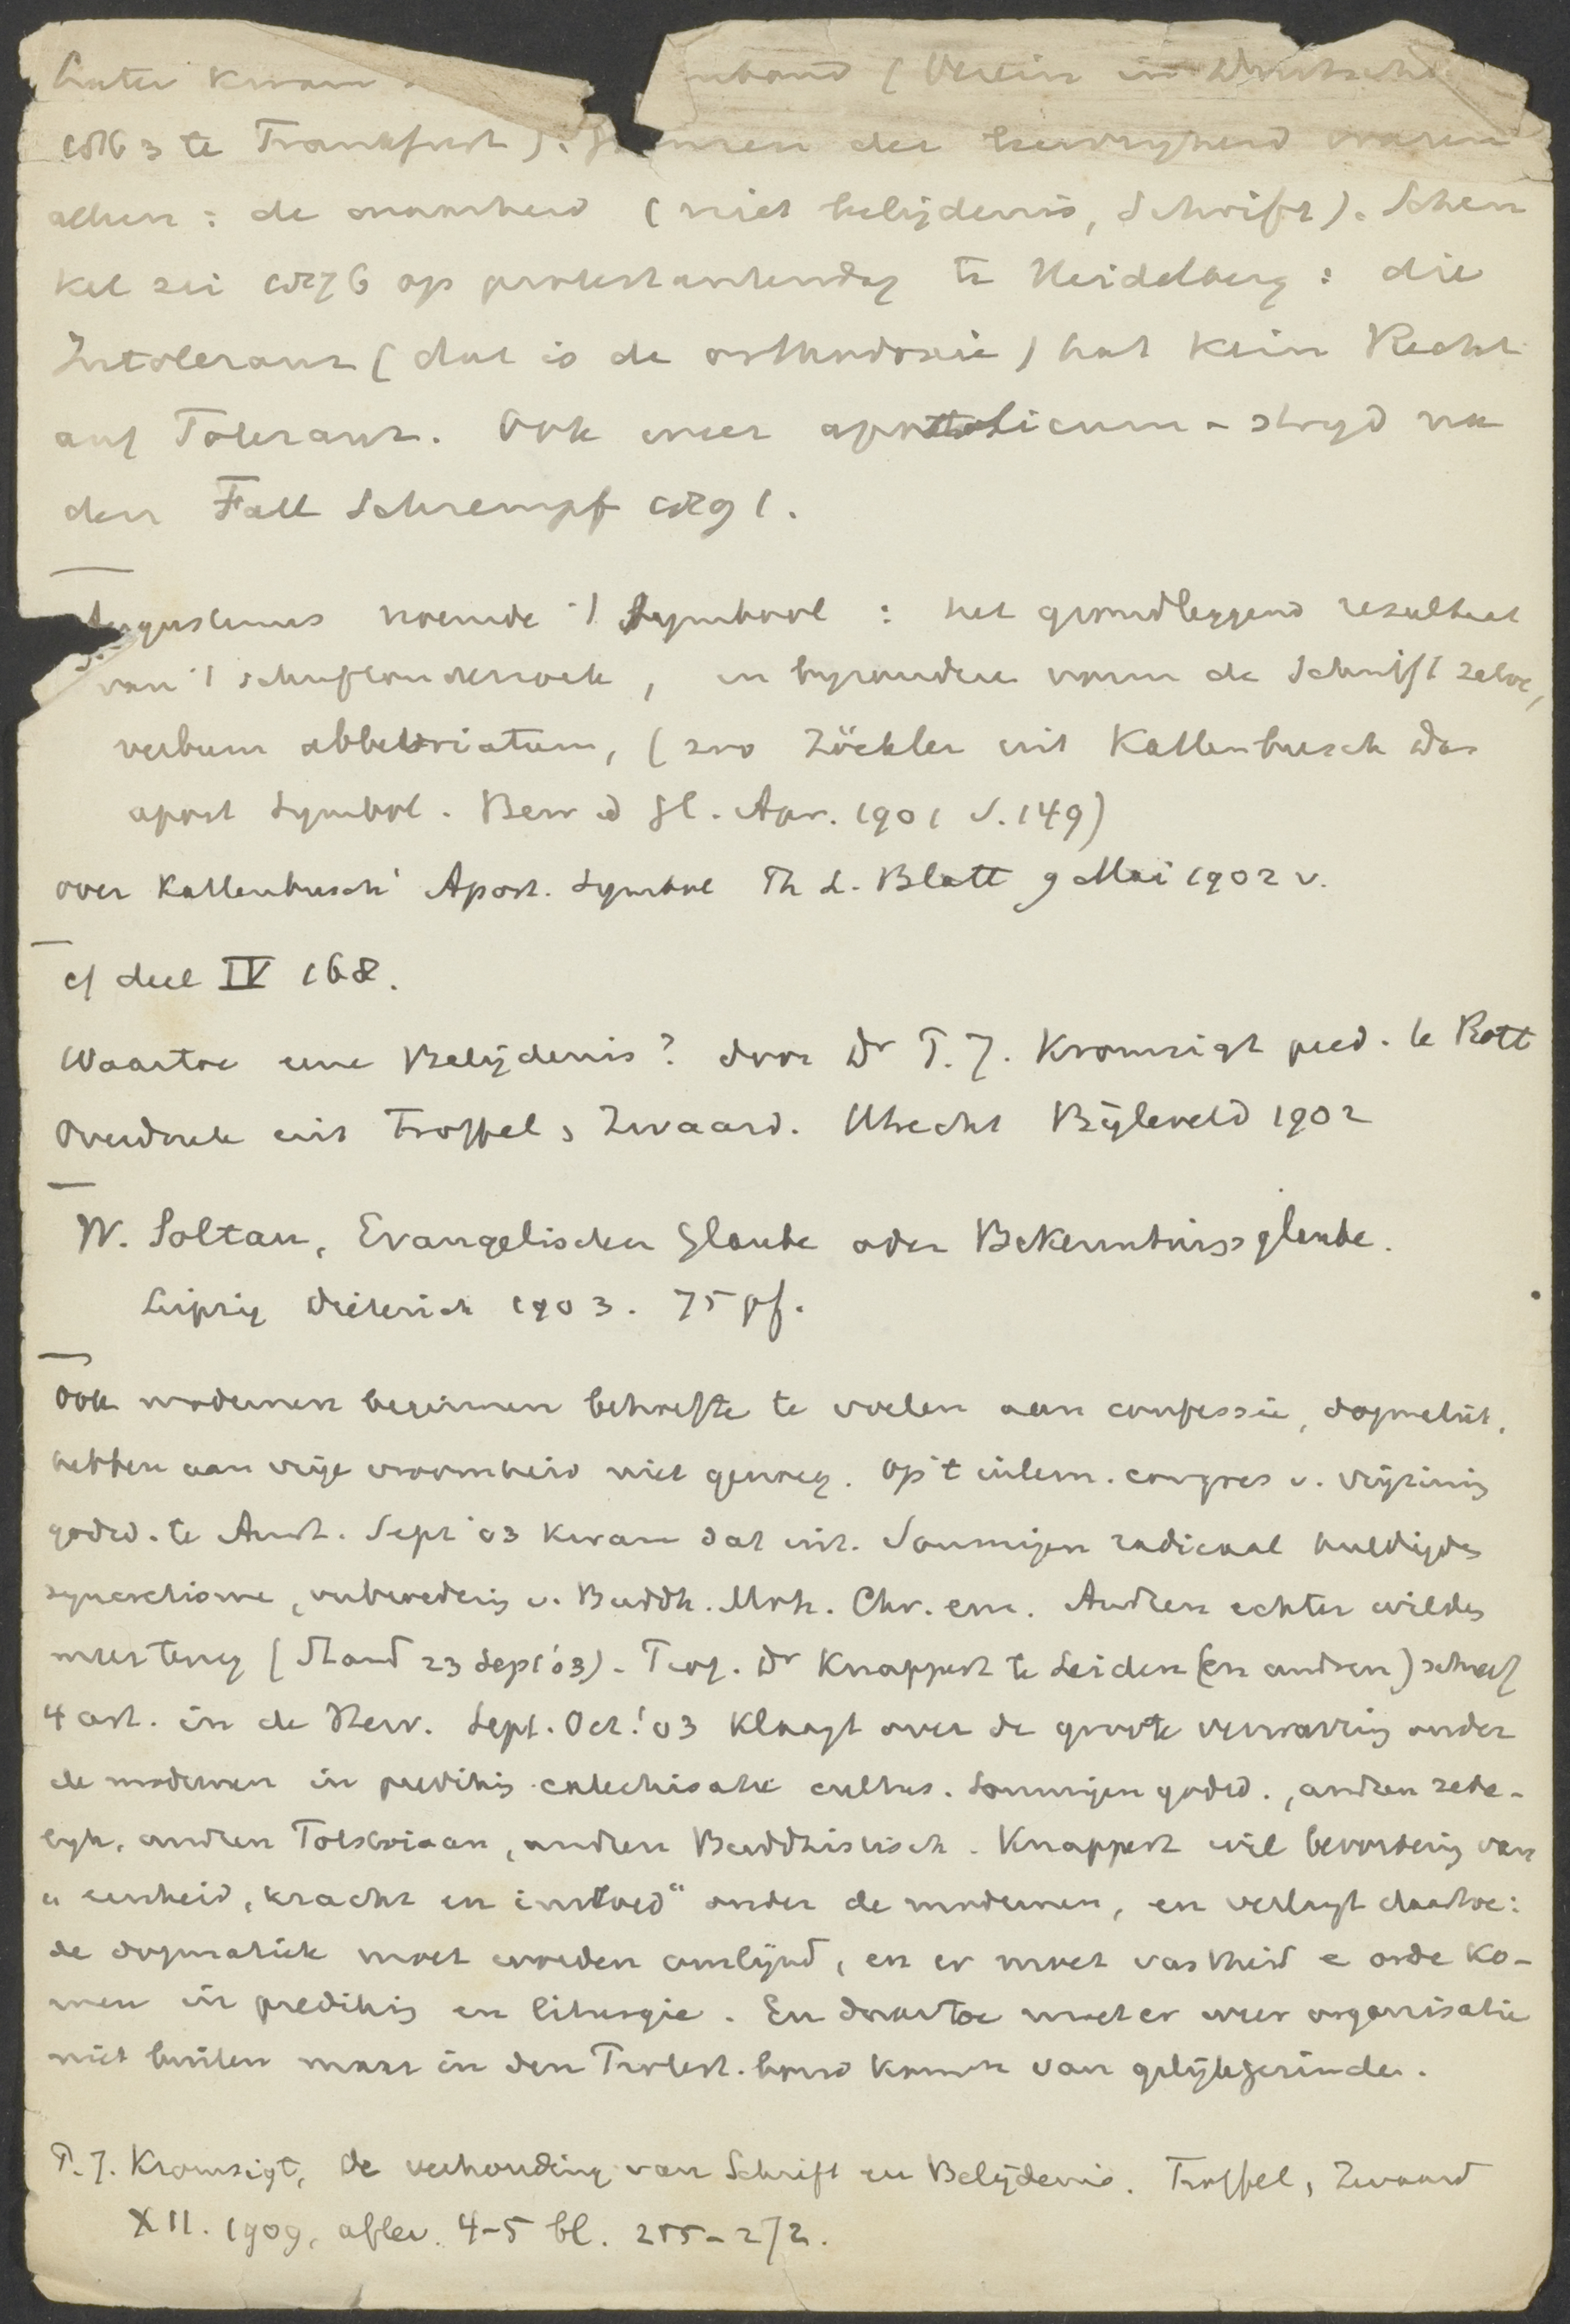 Later kwam
1863 te Frankfurt). Grenzen der leervrijheid waren
alleen: de waarheid (niet belijdenis, Schrift). Schen
kel zei 1876 op protestantendag te Heidelberg: die
Intoleranz (dat is de orthodoxie) hat kein Recht
auf Toleranz. Ook weer apostolicum-strijd na
den Fall Schrempf 1891.
Augustinus noemde 't Symbool: het grondleggend resultaat
van 't schriftonderzoek, in bijzondere vorm de Schrift zelve,
verbum abbreviatum, (zoo Zöckler uit Kattenbusch das
apost Symbol. Bew d Gl. Apr. 1901 S. 149)
over Kattenbusch' Apost. Symbol Th L. Blatt 9 Mai 1902 v.
cf deel IV 168.
Waartoe eene Belijdenis? door Dr P.J. Kromsigt pred. te Rott
Overdruk uit Troffel, Zwaard. Utrecht Bijleveld 1902
W. Soltau, Evangelischer Glaube oder Bekenntnissglaube.
Leipzig Dieterich 1903. 75 pf.
Ook modernen beginnen behoefte te voelen aan confessie, dogmatiek,
hebben aan vrije vroomheid niet genoeg. Op 't intern. congres v. vrijzinnig
godsd. te Amst. Sept '03 kwam dat uit. Sommigen radicaal huldigden
syncretisme, verbroedering v. Buddh. Moh. Chr. enz. Andren echter wilden
niet (Stand 23 Sept '03). Prof. Dr Knappert te Leiden (en andren) schreef
4 art. in de Herv. Sept. Oct. '03 klaagt over de groote verwarring onder
de modernen in prediking catechisatie cultus. Sommigen godsd., andren zede-
lijk, andren Tolstoiaan, andren Buddhistisch. Knappert wil bevordering van
"eenheid, kracht en invloed" onder de modernen, en verlangt daartoe:
de dogmatiek moet worden omlijnd, en er moet vastheid e orde ko-
men in prediking en liturgie. En daartoe moet er weer organisatie
niet buiten maar in den Protest. bond komen van gelijkgezinden.
P.J. Kromsigt, de verhouding van Schrift en Belijdenis. Troffel, Zwaard
XII. 1909, aflev. 4-5 bl. 255-272.